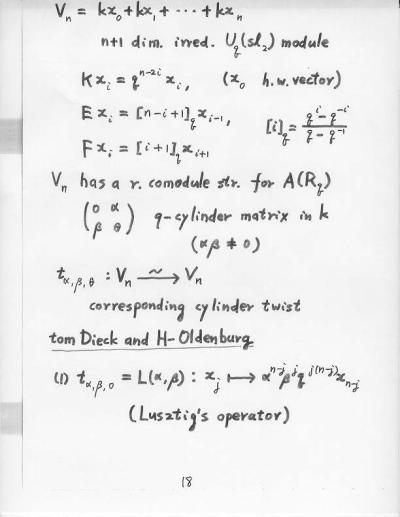 Vₙ = kx₀+kx₁ + ⋯ + kxₙ
n+1 dim. irred. U_q(sl₂) module
Kxᵢ = q^{n-2i} xᵢ, (x₀ h.w. vector)
Exᵢ = [n-i+1]_q x_{i-1}, [i]_q = \frac{q^i - q^{-i}}{q - q^{-1}}
Fxᵢ = [i+1]_q x_{i+1}
Vₙ has a r. comodule str. for A(R_q)
(0 α
β θ) q-cylinder matrix in k
(αβ ≠ 0)
t_{α,β,θ} : Vₙ ⥲ Vₙ
corresponding cylinder twist
tom Dieck and H-Oldenburg
(1) t_{α,β,0} = L(α,β) : x_j ↦ α^{n-j} β^j q^{j(n-j)} x_{n-j}
(Lusztig's operator)
18